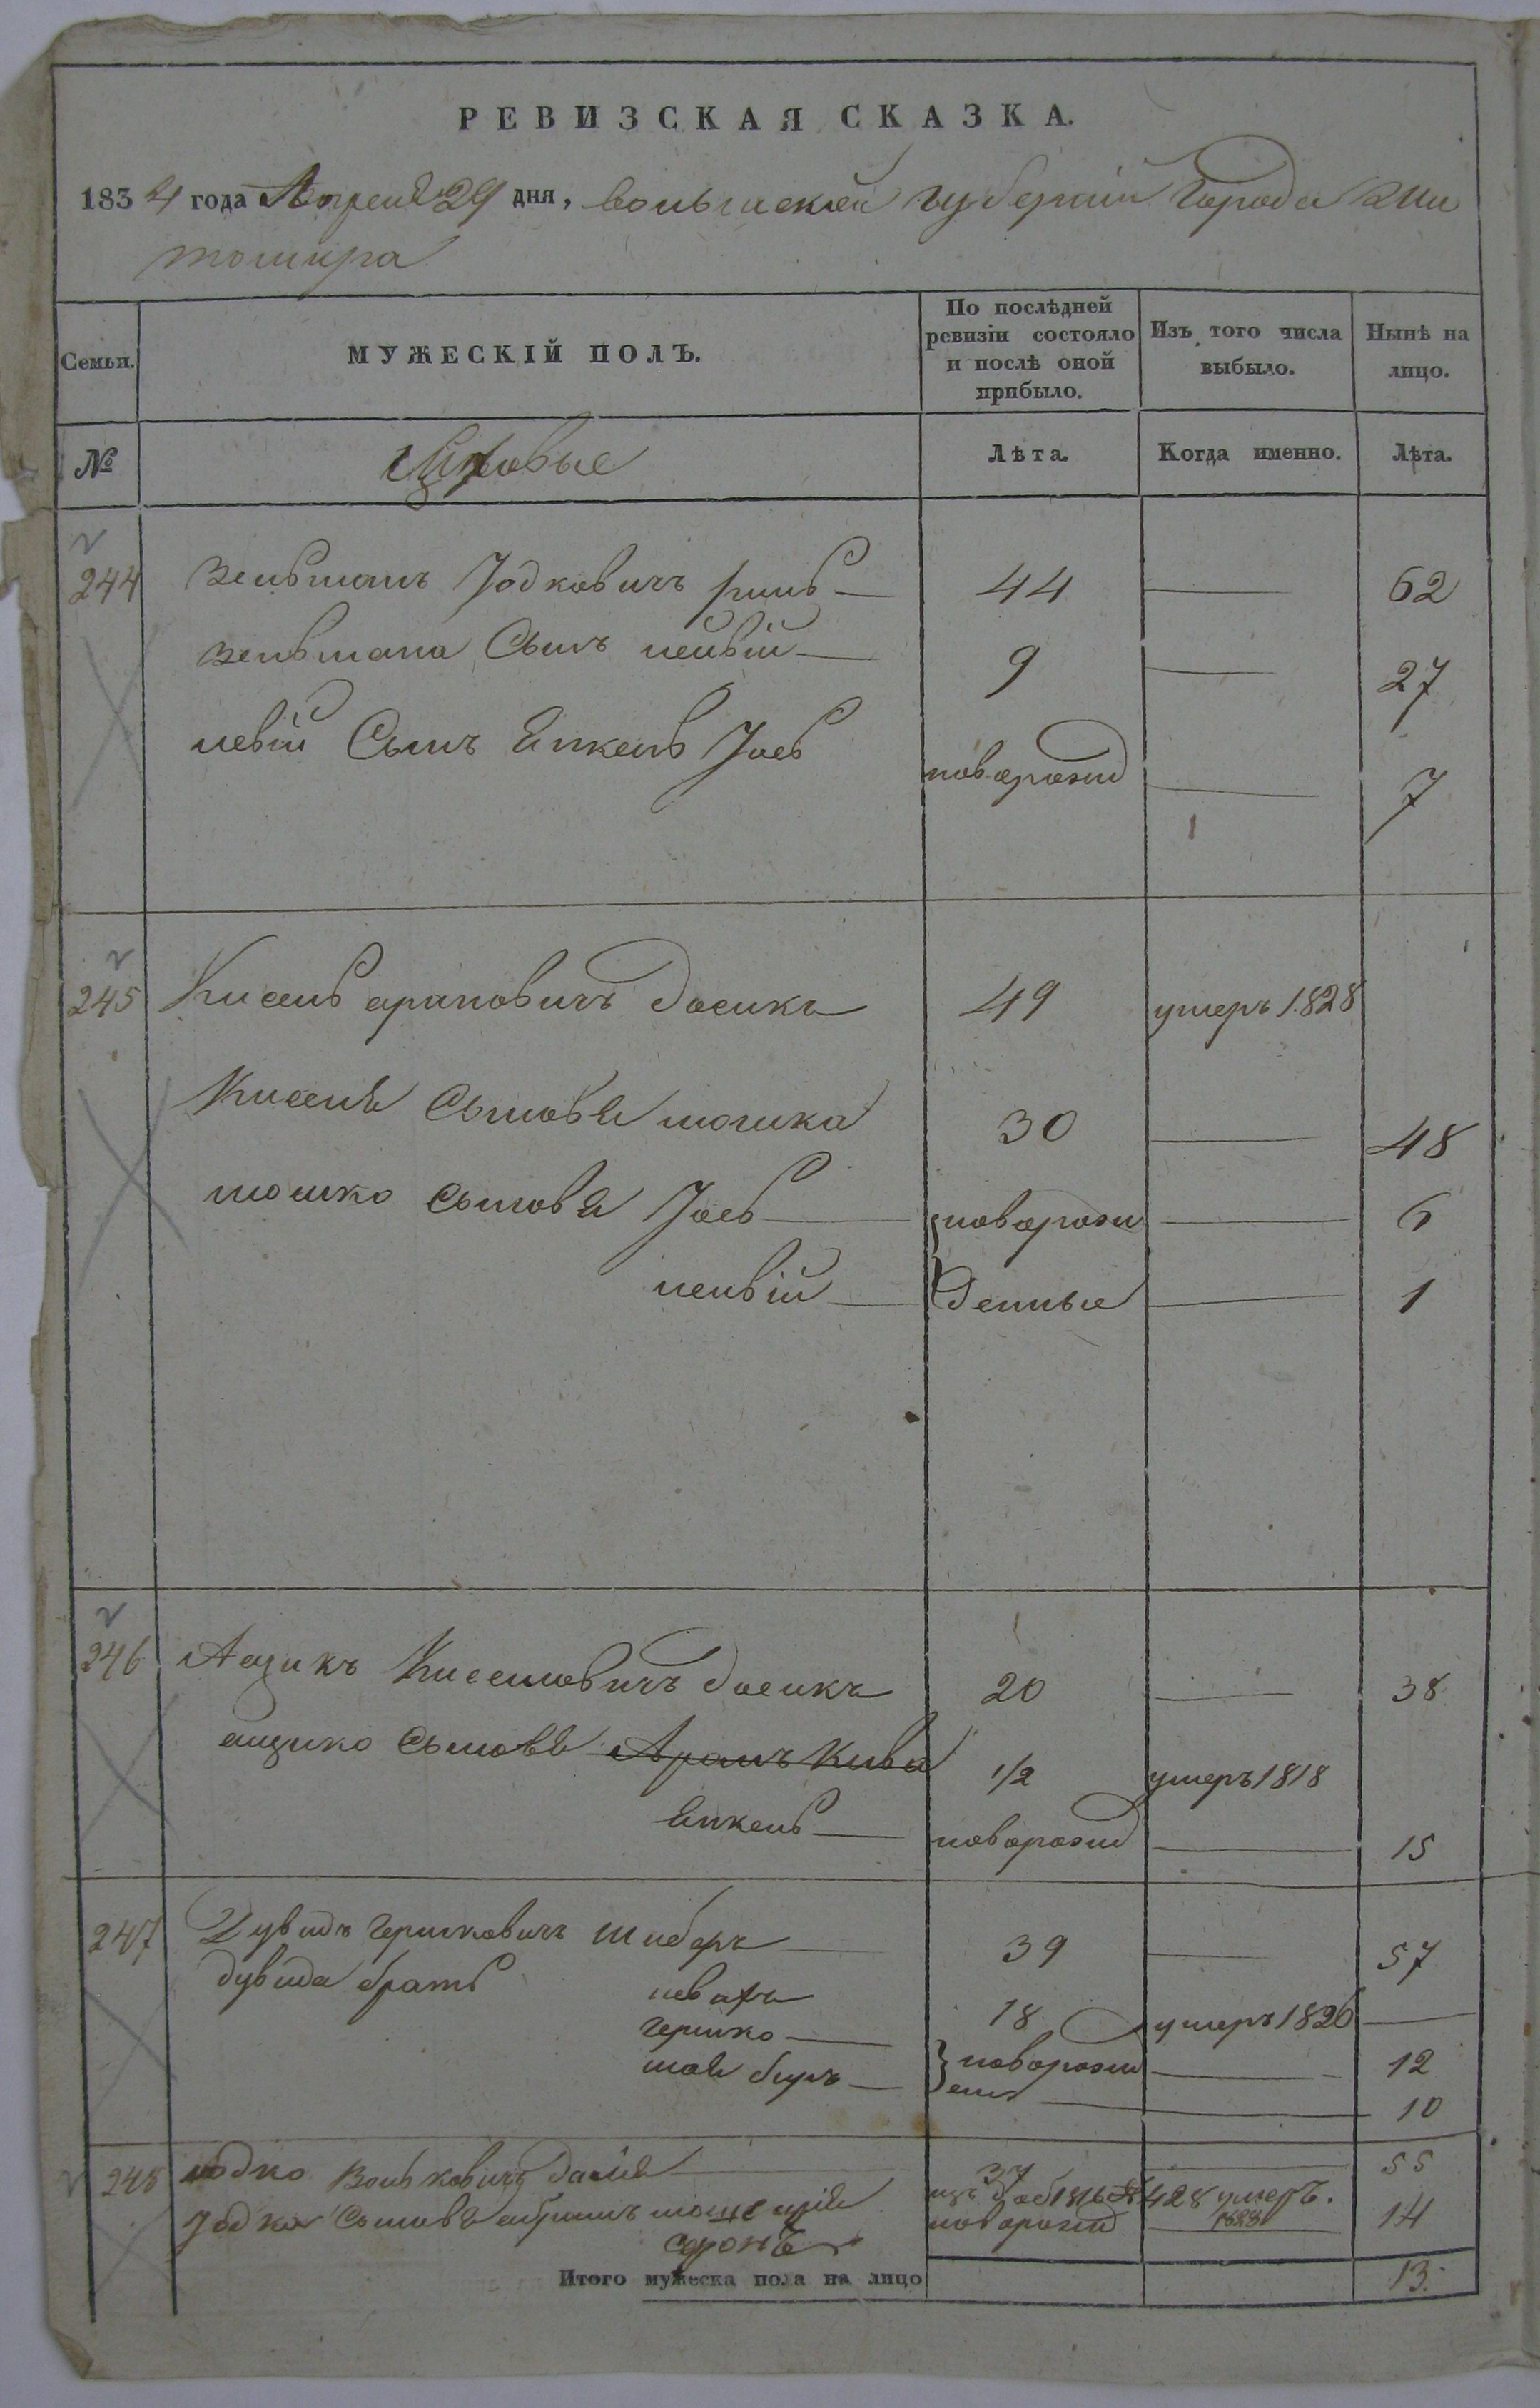 РЕВИЗСКАЯ СКАЗКА.
1834 года Апреля 29 дня, волынской губернии города Жи
томира
Семьи.
МУЖЕСКІЙ ПОЛЪ.
По послѣдней ревизіи состояло и послѣ оной прибыло.
Изъ того числа выбыло.
Нынѣ на лицо.
№
Лѣта.
Когда именно.
Лѣта.
244 Зельманъ Іодковичъ 44 — 62
Зельмана Сынъ лейвій — 9 — 27
левій Сынъ Янкель Іось новорожд — 7
245 Кисель ароновичъ Досикъ 49 умеръ 1828
Киселя Сыновья мошка 30 — 48
мошко сыновья Іось — новорож — 6
лейвій — денные — 1
246 Аицикъ Киселиовичъ Досикъ 20 — 38
аицико Сыновья Аронъ Кива 1/2 умеръ 1818
Янкель — новорожд — 15
247 Дувидъ гершковичъ Шиберъ — 39 — 57
дувида братъ
18 умеръ 1826 —
гершко — новорожд — 12
— ены — 10
248 Іодко Волькович — 37 — 55
Іодко Сыновья абрамъ новорозд — 14
Итого мужеска пола на лицо 13.